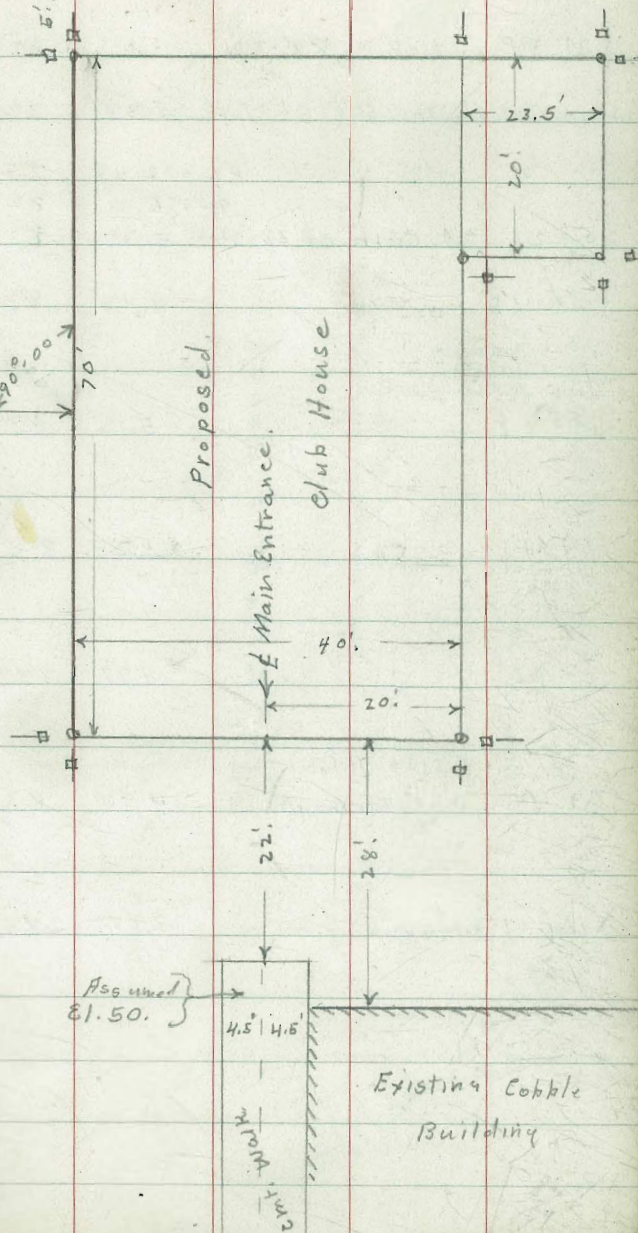 5'.
23.5'
20'.
90°-00
70'
Proposed.
Club House
℄ Main Entrance.
40'.
20'.
22'.
28'.
Assumed
El.50.
4.5' 4.5'
Existing Cobble
Building
Cmt. Walk